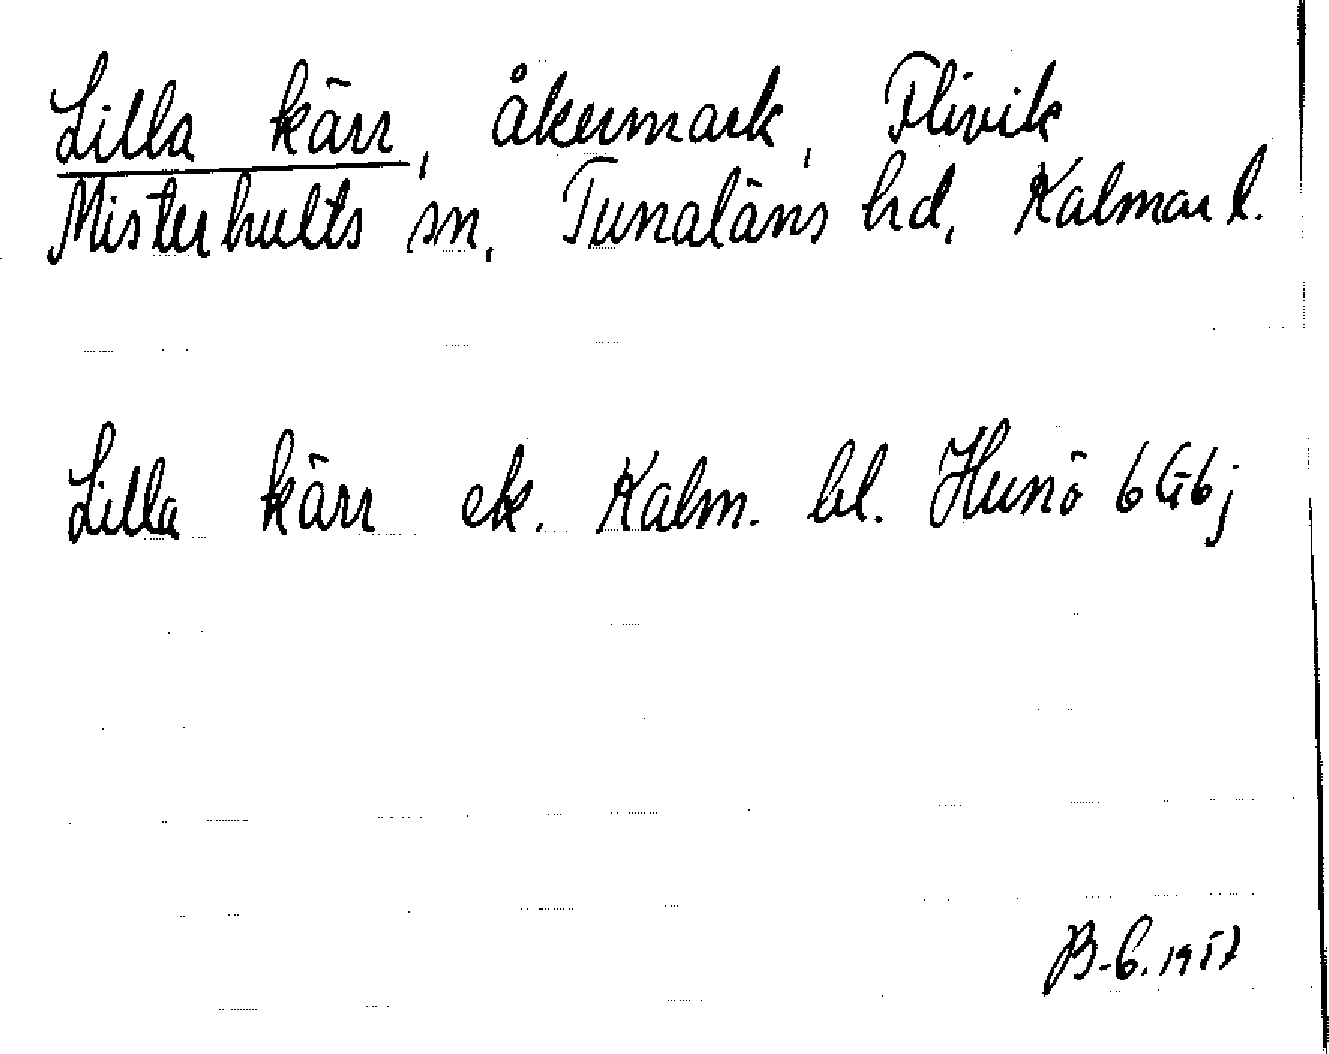 Lilla kärr, åkermark, Flivik
Misterhults sn, Tunaläns hd, Kalmar l.
Lilla kärr ek. Kalm. bl. Hunö 6G6j
B-G. 1957